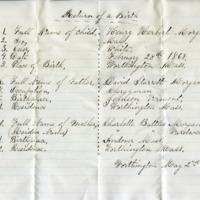 Return of a Birth
1 Full Name of child, Henry Herbert Morgan
2 Sex, Male
3 Color, White
4 Date February 28th 1868
5 Place of Birth, Worthington Mass.
Full Name of Father, David Sterrett Morgan
Occupation, Clergyman
Birthplace, Johnson Vermont,
Residence Worthington Mass.
Full Name of Mother, Charlotte Butler Morgan
(Maiden Name)
Birthplace, Andover Mass.
Residence, Worthington Mass.
Worthington May 2nd